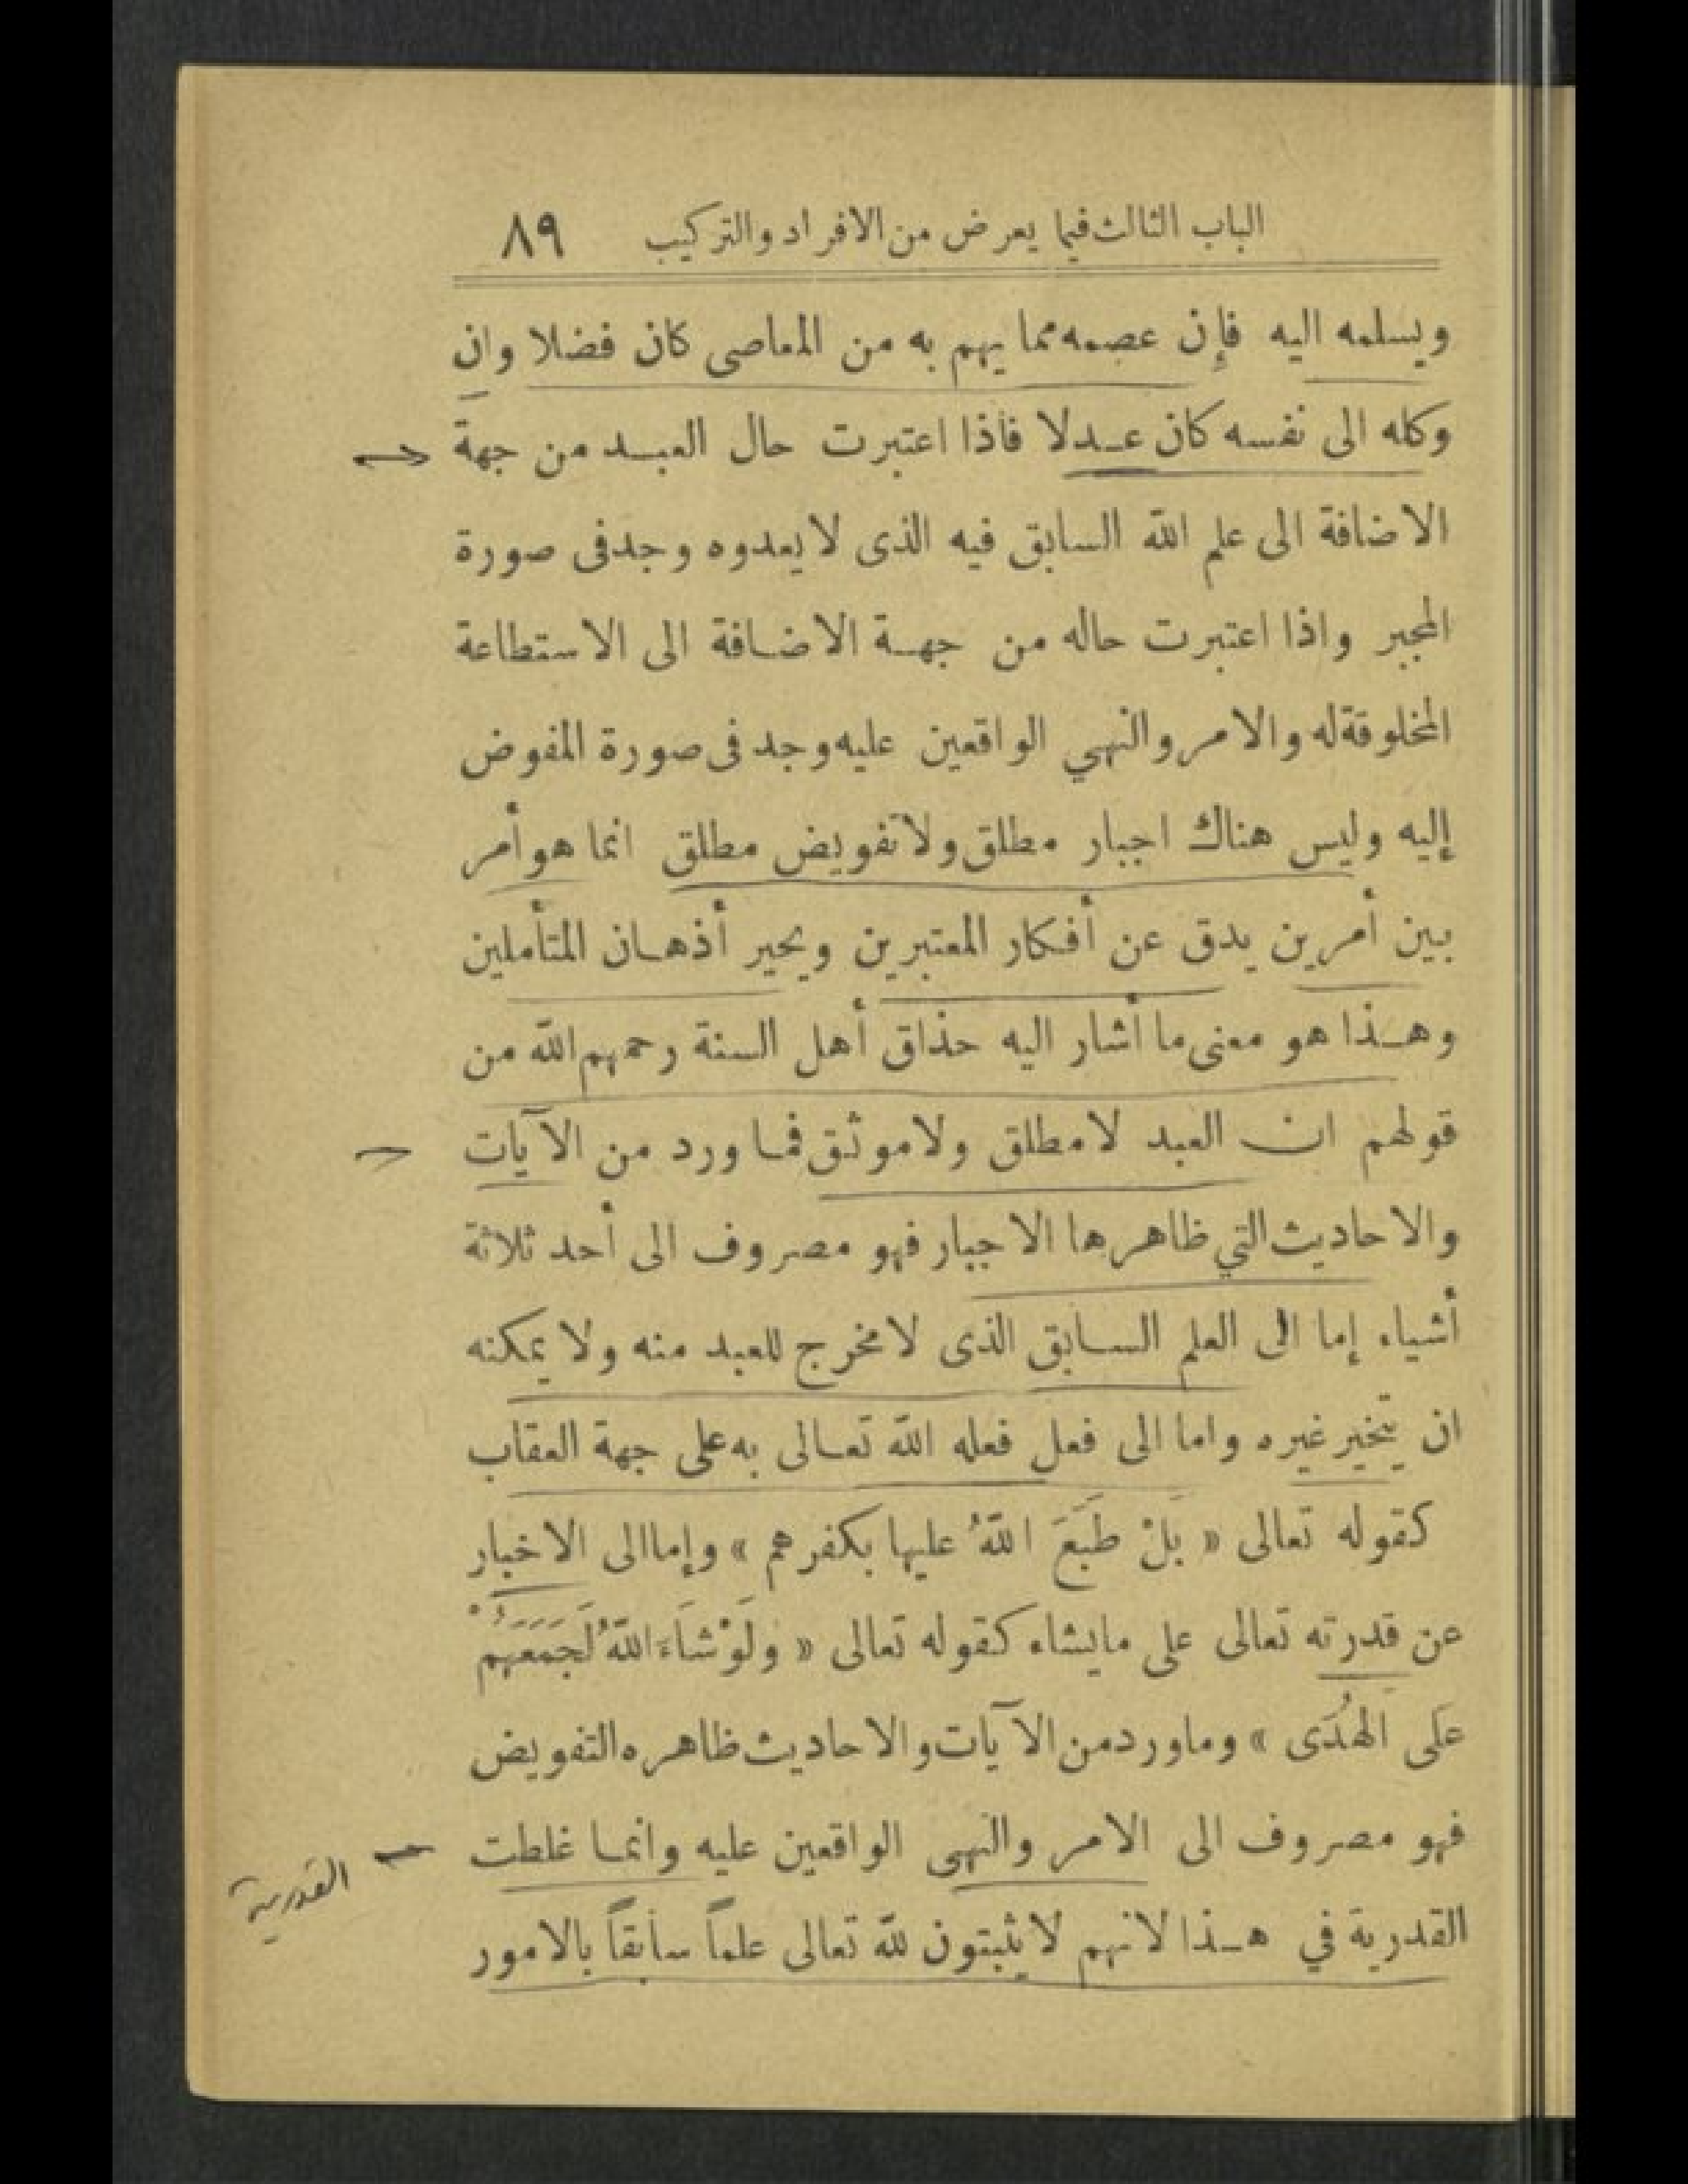 الباب الثالث فيما يعرض من الافراد والتركيب ٨٩
ويسلمه اليه فإن عصمه مما يهم به من المعاصى كان فضلا وان
وكله الى نفسه كان عدلا فاذا اعتبرت حال العبد من جهة
الاضافة الى علم الله السابق فيه الذى لا يعدوه وجد فى صورة
المجبر واذا اعتبرت حاله من جهة الاضافة الى الاستطاعة
المخلوقة له والامر والنهي الواقعين عليه وجد فى صورة المفوض
إليه وليس هناك اجبار مطلق ولا تفويض مطلق انما هو أمر
بين أمرين يدق عن أفكار المعتبرين ويحير أذهان المتأملين
وهذا هو معنى ما أشار اليه حذاق أهل السنة رحمهم الله من
قولهم ان العبد لا مطلق ولا موثق فما ورد من الآيات
والاحاديث التي ظاهرها الاجبار فهو مصروف الى أحد ثلاثة
أشياء إما الى العلم السابق الذى لا مخرج للعبد منه ولا يمكنه
ان يتخير غيره واما الى فعل فعله الله تعالى به على جهة العقاب
كقوله تعالى « بَلْ طَبَعَ اللهُ عليها بكفرهم » وإما الى الاخبار
عن قدرته تعالى على ما يشاء كقوله تعالى « ولَوْ شَاءَ اللهُ لَجَمَعَهُمْ
عَلَى الهُدَى » وما ورد من الآيات والاحاديث ظاهره التفويض
فهو مصروف الى الامر والنهى الواقعين عليه وانما غلطت
القدرية
القدرية في هذا لانهم لا يثبتون لله تعالى علماً سابقاً بالامور